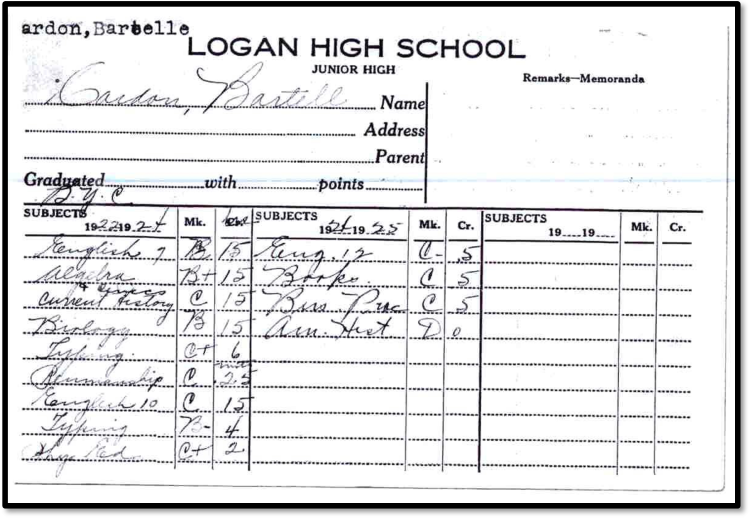 ardon, Bartelle
LOGAN HIGH SCHOOL
JUNIOR HIGH
Remarks—Memoranda
Cardon, Bartell Name
Address
Parent
Graduated with points
B.Y.C.
SUBJECTS 1922-1924 Mk. SUBJECTS 1924 1925 Mk. Cr. SUBJECTS 19 19 Mk. Cr.
English 9 B 15 Eng. 12 C- .5
Algebra B+ 15 Bookp. C 5
Current History & Civics C 15 Bus. Prac C 5
Biology B 15 Am. Hist D 0
Typing C+ 6
Penmanship C .25
English 10 C 15
Typing B- 4
Phy. Ed. C+ 2